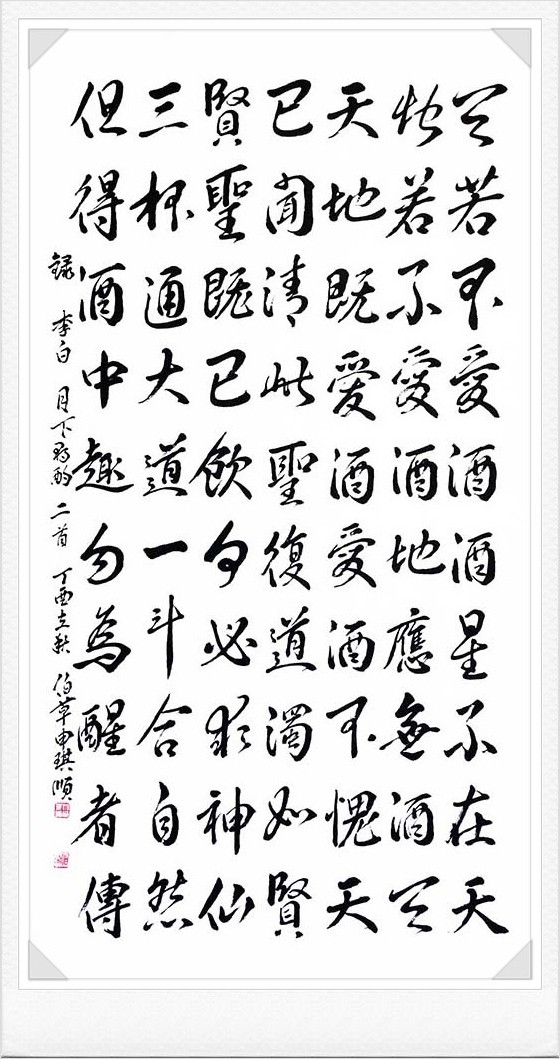 天若不愛酒酒星不在天
地若不愛酒地應無酒天
天地既愛酒愛酒不愧天
已聞清此聖復道濁如賢
賢聖既已飲何必求神仙
三杯通大道一斗合自然
但得酒中趣勿為醒者傳
錄 李白 月下獨酌 二首 丁酉立秋 伯草申琪順